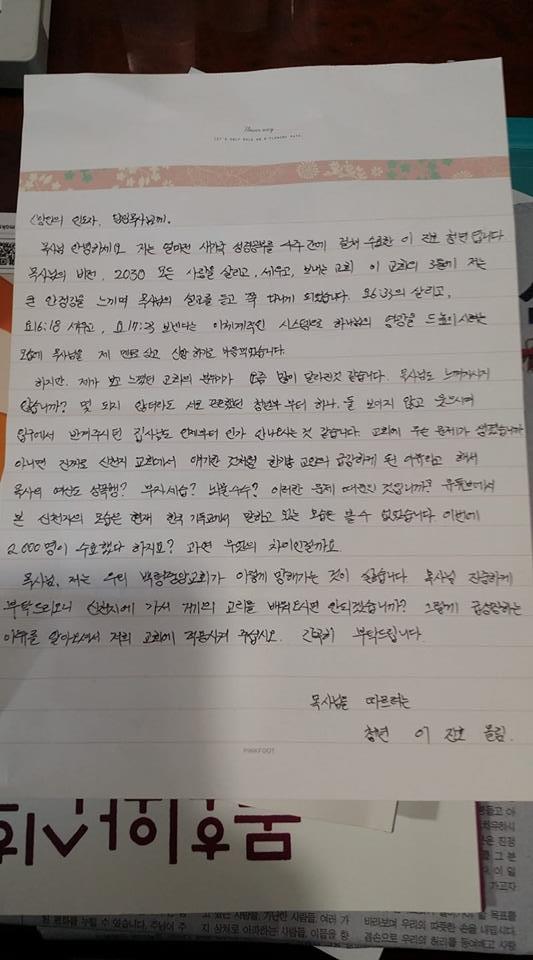 Flower way
LET'S ONLY WALK ON A FLOWERY PATH.
<양떼의 인도자, 담임목사님께.
목사님 안녕하세요. 저는 얼마전 새가족 성경공부를 4주간에 걸쳐 수료한 이 진호 청년 입니다
목사님의 비전, 2030 모든 사람을 살리고, 세우고, 보내는 교회 이 교회의 3통에 저는
큰 안정감을 느끼며 목사님의 설교를 듣고 쭉 다니게 되었습니다. 요6:35의 살리고,
요16:18 세우고, 요 17:23 보낸다는 이 체계적인 시스템으로 하나님의 영광을 드높이시려는
모습에 목사님을 제 멘토 삼고 신앙 하기로 마음먹었습니다.
하지만, 제가 보고 느꼈던 교회의 분위기가 요즘 많이 달라진것 같습니다. 목사님도 느껴지시지
않습니까? 몇 되지 않더라도 서로 돈독했던 청년부 부터 하나, 둘 보이지 않고 웃으시며
입구에서 반겨주시던 집사님도 언제부터 인가 안나오시는 것 같습니다. 교회에 무슨 문제가 생겼습니까
아니면 진짜로 신천지 교회에서 얘기한 것처럼 한기총 교인이 급감하게 된 이유라고 해서
목사의 여신도 성폭행? 부자세습? 뇌물수수? 이러한 문제 때문인 것입니까? 유튜브에서
본 신천지의 모습은 현재 한국 기독교에서 말하고 있는 모습은 볼 수 없었습니다. 이번에
2,000명이 수료했다 하지요? 과연 무엇의 차이인걸까요
목사님, 저는 우리 백향중앙교회가 이렇게 망해가는 것이 싫습니다. 목사님 진중하게
부탁드리오니 신천지에 가서 거기의 교리를 배워오시면 안되겠습니까? 그렇게 급성장하는
이유를 알아오셔서 저희 교회에 적용시켜 주십시오. 간곡히 부탁드립니다.
목사님을 따르려는
청년 이 진호 올림.
PINKFOOT